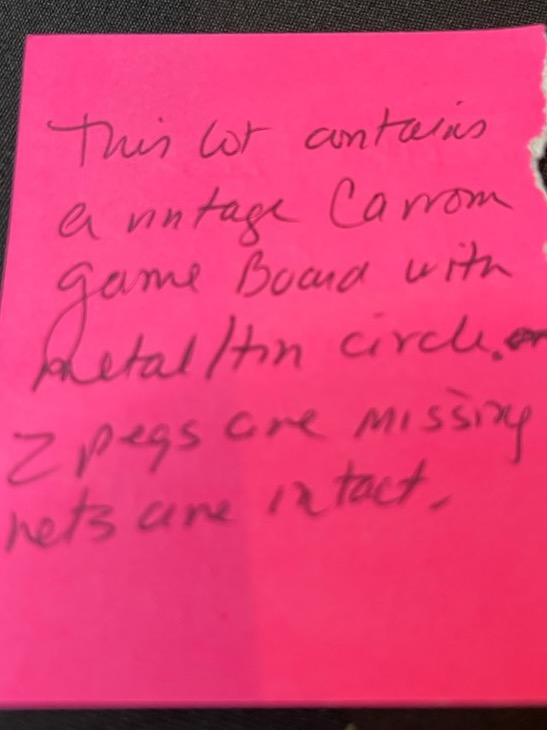 This lot contains
a vintage Carrom
game Board with
metal/tin circle.
2 pegs are missing
nets are intact.